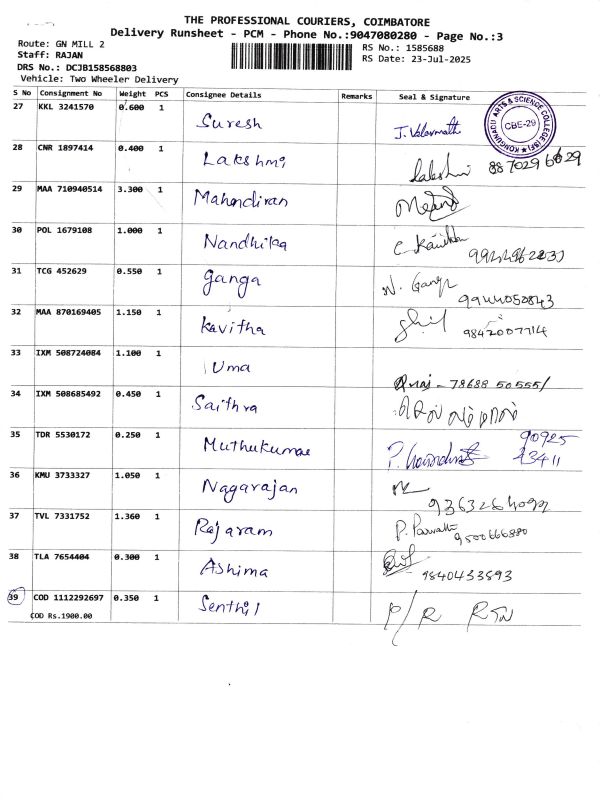 THE PROFESSIONAL COURIERS, COIMBATORE
Delivery Runsheet - PCM - Phone No.:9047080280 - Page No.:3
Route: GN MILL 2
RS No.: 1585688
Staff: RAJAN
RS Date: 23-Jul-2025
DRS No.: DCJB158568803
Vehicle: Two Wheeler Delivery
S No Consignment No Weight PCS Consignee Details Remarks Seal & Signature
27 KKL 3241570 0.600 1 Suresh J. Valarmathi
KONGUNADU ARTS & SCIENCE COLLEGE (SF) CBE-29
28 CNR 1897414 0.400 1 Lakshmi Lakshmi
29 MAA 710940514 3.300 1 Mahendiran
30 POL 1679108 1.000 1 Nandhikaa
31 TCG 452629 0.550 1 Ganga N. Ganga 9944050843
32 MAA 870169405 1.150 1 Kavitha 9842007714
33 IXM 508724084 1.100 1 Uma 78688 50555/
34 IXM 508685492 0.450 1 Saithra
35 TDR 5530172 0.250 1 Muthukumar 90925 43411
36 KMU 3733327 1.050 1 Nagarajan
37 TVL 7331752 1.360 1 Rajaram P. Parvathi 9500666880
38 TLA 7654404 0.300 1 Ashima 9840433893
39 COD 1112292697 0.350 1 Senthil P/R RTN
COD Rs.1900.00